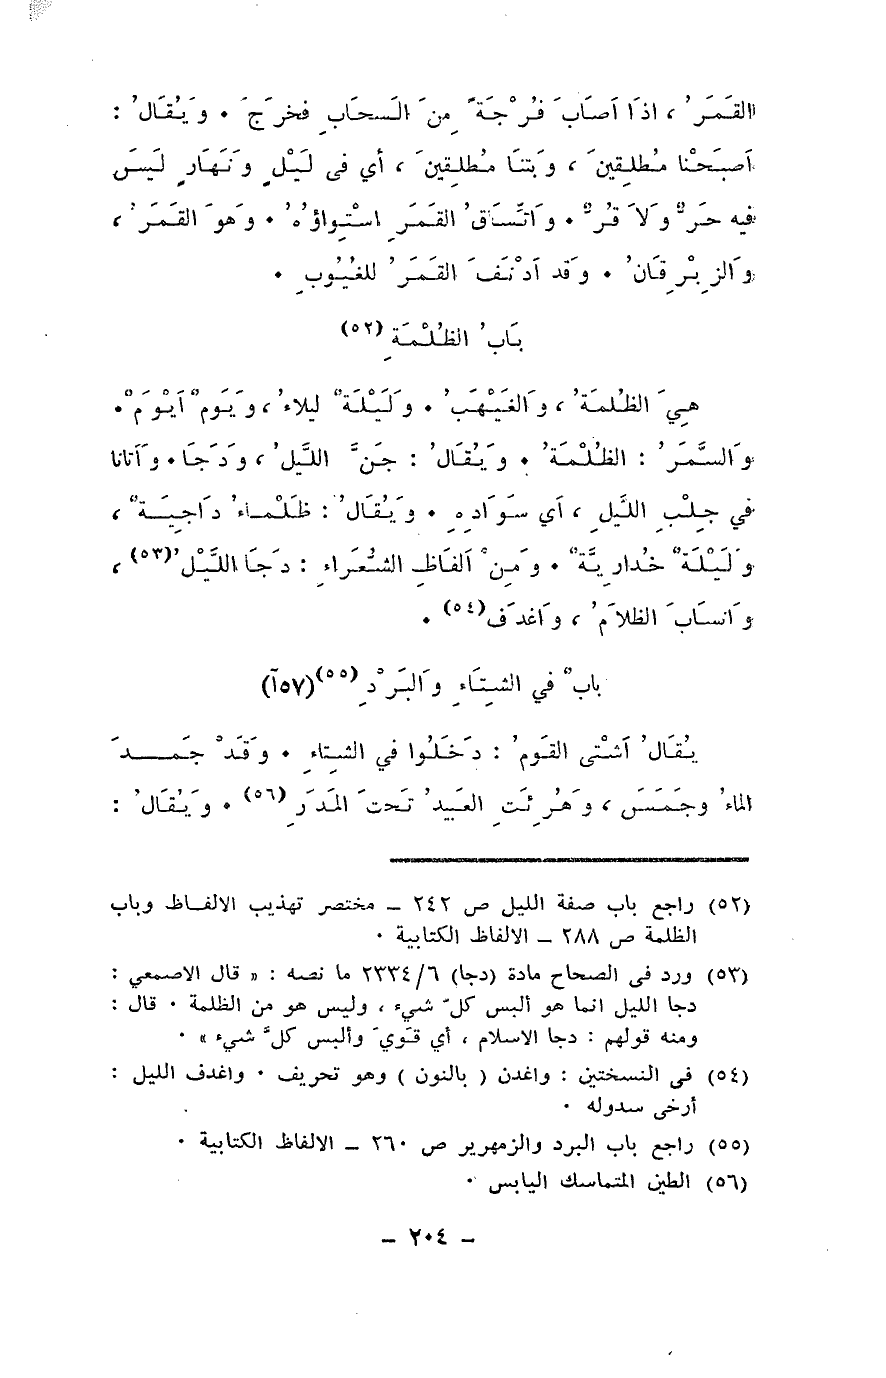 القَمَرُ ، اذَا أَصَابَ فُرْجَةً مِنَ السَحَابِ فخرَجَ ٠ وَيُقَالُ :
أَصبَحْنا مُطلِقينَ ، وَبتنَا مُطلِقينَ ، أي فى لَيْلٍ وَنَهَارٍ لَيسَ
فيه حَرٌّ وَلاَ قُرٌّ ٠ وَاتِّسَاقُ القَمَرِ اسْتِواؤُهُ ٠ وَهوَ القَمَرُ ،
وَالزِبْرِقَانُ ٠ وَقد أَدْنَفَ القَمَرُ للغُيُوبِ ٠
بَابُ الظُلْمَةِ (٥٢)
هِيَ الظُلمَةُ ، وَالغَيْهَبُ ٠ وَلَيْلَةٌ ليلاءُ ، وَيَومٌ أَيْوَمٌ ٠
وَالسَّمَرُ : الظُلْمَةُ ٠ وَيُقَالُ : جَنَّ اللَّيلُ ، وَدَجَا ٠ وَأَتانا
في جِلْبِ اللَّيلِ ، أي سَوَادِهِ ٠ وَيُقَالُ : ظَلْمَاءُ دَاجِيَةٌ ،
وَلَيْلَةٌ خُدارِيَّةٌ ٠ وَمِنْ أَلفَاظِ الشُعَرَاءِ : دَجَا اللَّيْلُ (٥٣) ،
وَانسَابَ الظلاَمُ ، وَاغدَف (٥٤) ٠
بابٌ في الشِتَاءِ وَالبَرْدِ (٥٥) (٥٧آ)
يُقَالُ أَشْتى القَومُ : دَخَلُوا في الشِتاءِ ٠ وَقَدْ جَمَدَ
الماءُ وجَمَسَ ، وَهُرِئَتِ العَبيدُ تَحتَ المَدَرِ (٥٦) ٠ وَيُقَالُ :
(٥٢) راجع باب صفة الليل ص ٢٤٢ ــ مختصر تهذيب الالفاظ وباب
الظلمة ص ٢٨٨ ــ الالفاظ الكتابية ٠
(٥٣) ورد فى الصحاح مادة (دجا) ٢٣٣٤/٦ ما نصه : « قال الاصمعي :
دجا الليل انما هو ألبس كلّ شيء ، وليس هو من الظلمة ٠ قال :
ومنه قولهم : دجا الاسلام ، أي قَويَ وألبس كلَّ شيء » ٠
(٥٤) فى النسختين : واغدن ( بالنون ) وهو تحريف ٠ واغدف الليل :
أرخى سدوله ٠
(٥٥) راجع باب البرد والزمهرير ص ٢٦٠ ــ الالفاظ الكتابية ٠
(٥٦) الطين المتماسك اليابس ٠
ــ ٢٠٤ ــ